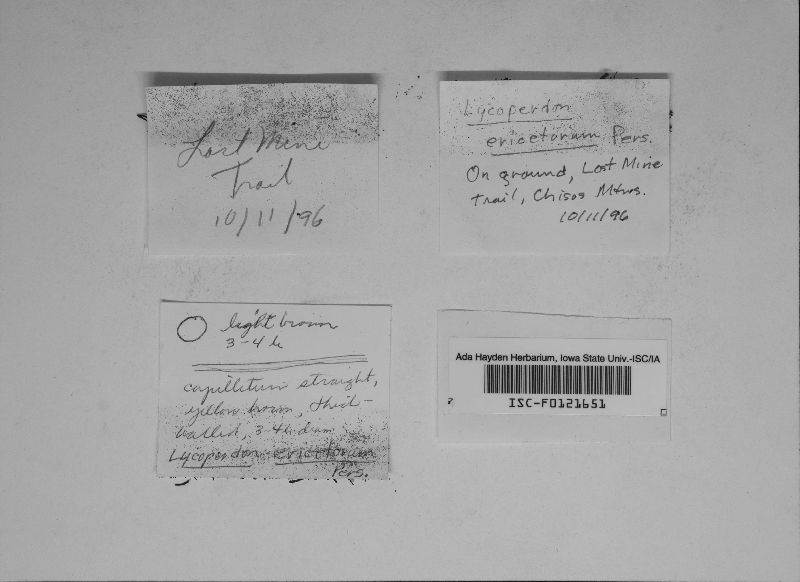 Lost Mine
Trail
10/11/96
Lycoperdon
ericetorum Pers.
On ground, Lost Mine
Trail, Chisos Mtns.
10/11/96
light brown
3-4 µ
capillitium straight,
yellow brown, thick-
walled, 3-4µ diam
Lycoperdon ericetorum
Pers.
Ada Hayden Herbarium, Iowa State Univ.-ISC/IA
ISC-F0121651